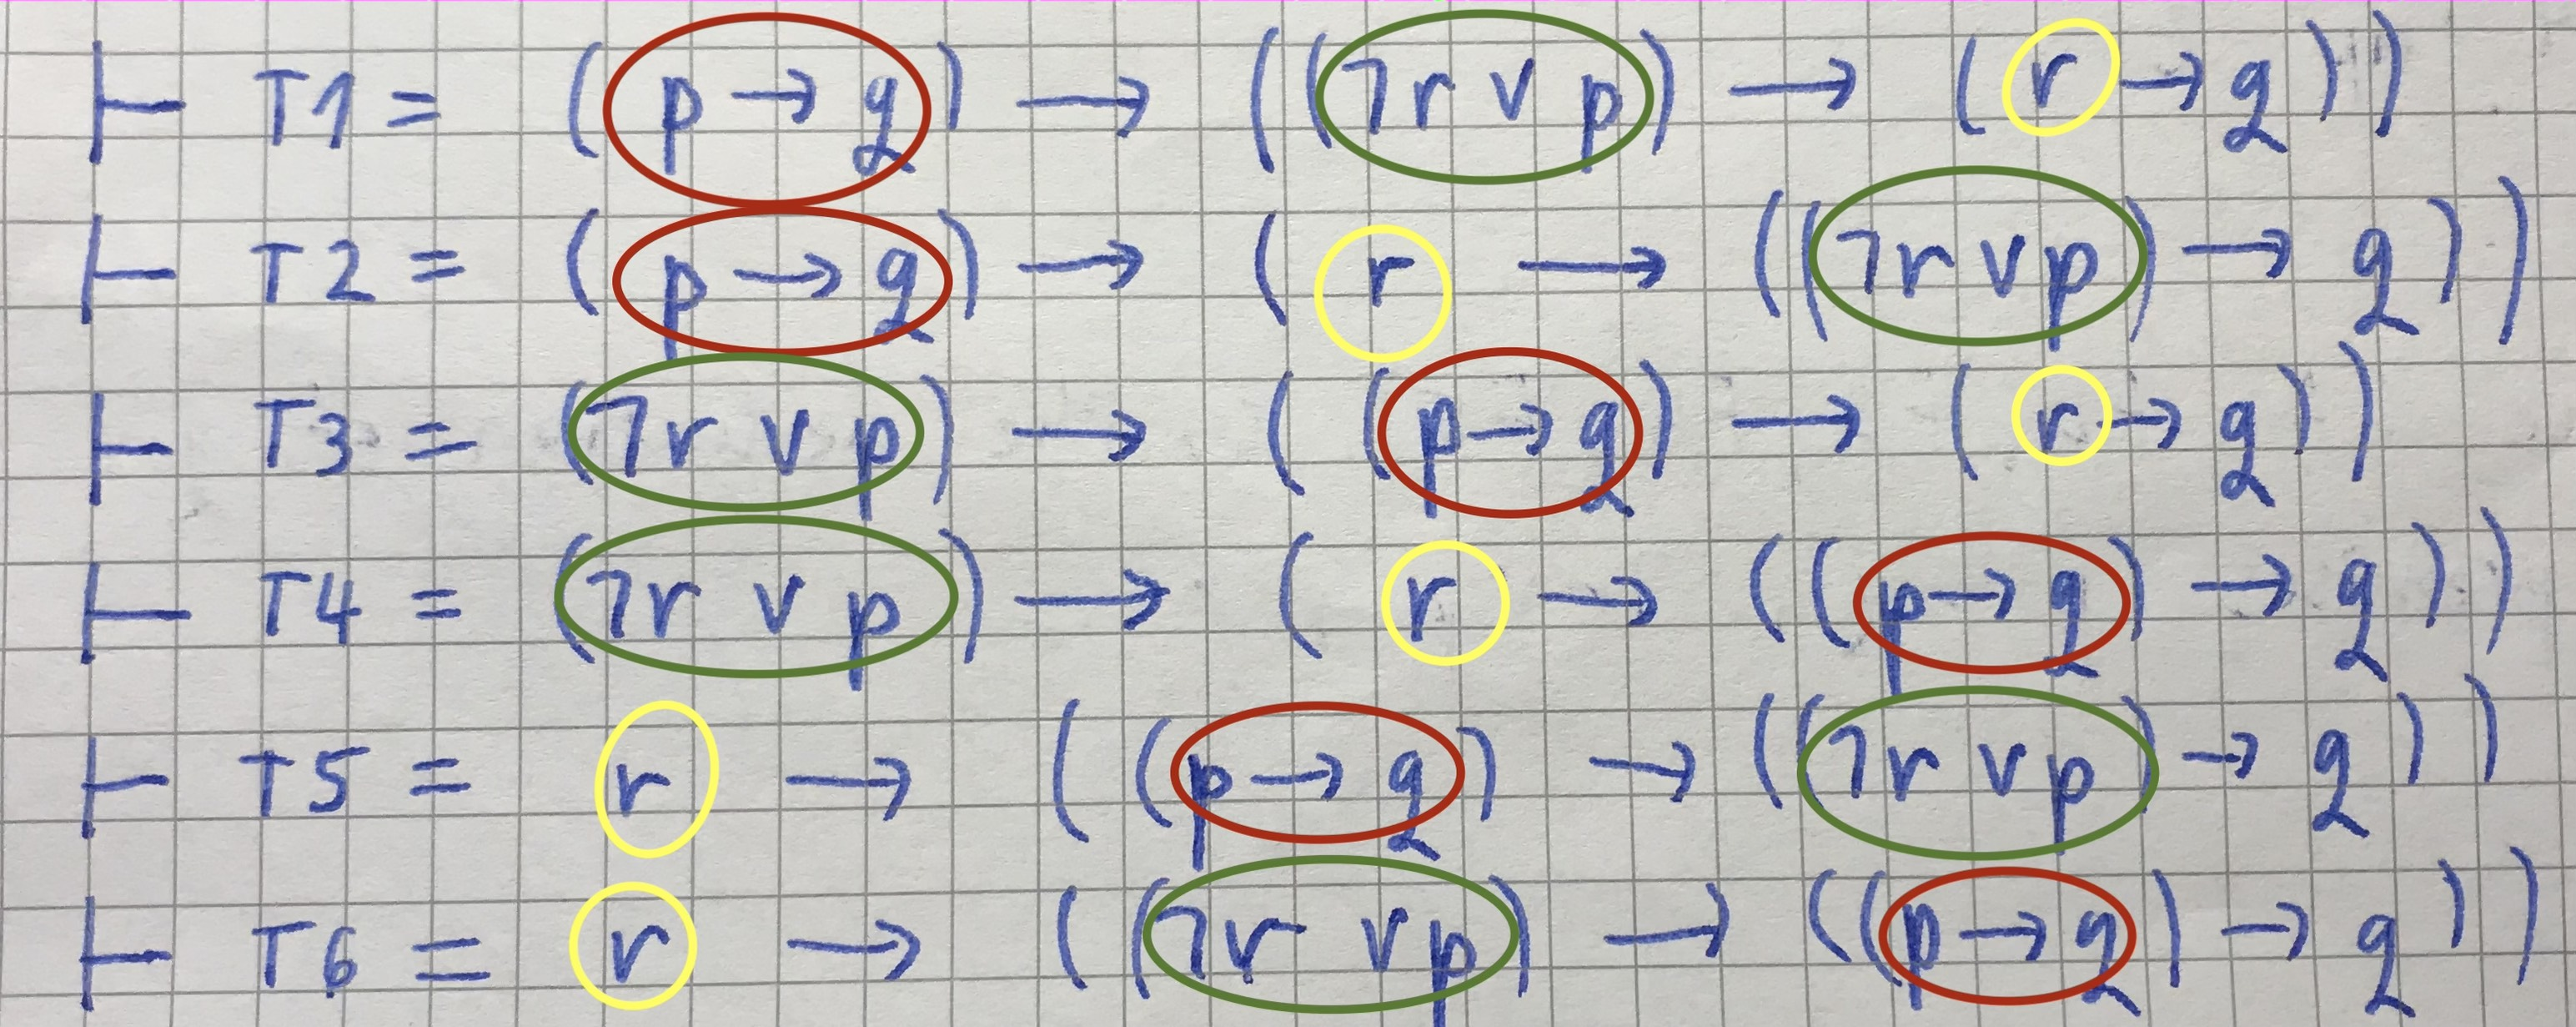 ⊢ T1 = (p → q) → ((¬r ∨ p) → (r → q))
⊢ T2 = (p → q) → (r → ((¬r ∨ p) → q))
⊢ T3 = (¬r ∨ p) → ((p → q) → (r → q))
⊢ T4 = (¬r ∨ p) → (r → ((p → q) → q))
⊢ T5 = r → ((p → q) → ((¬r ∨ p) → q))
⊢ T6 = r → ((¬r ∨ p) → ((p → q) → q))